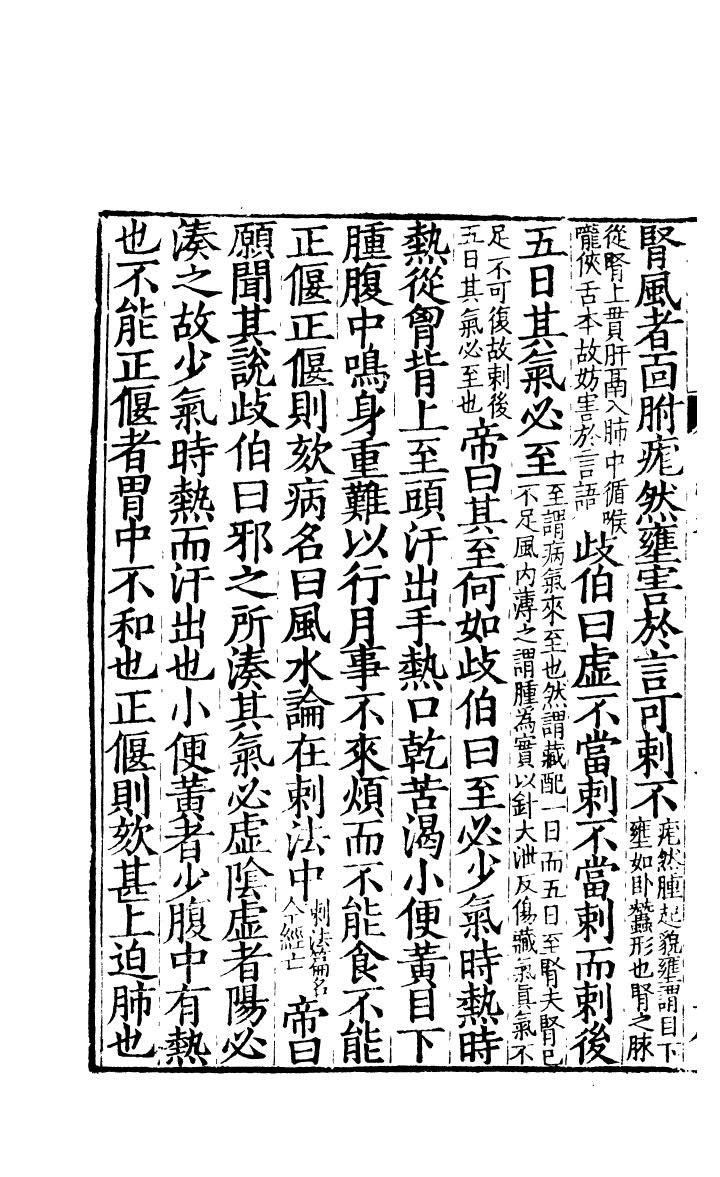 腎風者面胕痝然壅害於言可刺不痝然腫起貌壅謂目下壅如卧蠶形也腎之脉
從腎上貫肝鬲入肺中循喉嚨俠舌本故妨害於言語歧伯曰虚不當刺不當刺而刺後
五日其氣必至至謂病氣來至也然謂藏配一日而五日至腎夫腎已不足風內薄之謂腫為實以針大泄反傷藏氣真氣不
足不可復故刺後五日其氣必至也帝曰其至何如歧伯曰至必少氣時熱時
熱從胷背上至頭汗出手熱口乾苦渴小便黃目下
腫腹中鳴身重難以行月事不來煩而不能食不能
正偃正偃則欬病名曰風水論在刺法中刺法篇名今經亡帝曰
願聞其說歧伯曰邪之所湊其氣必虚陰虚者陽必
湊之故少氣時熱而汗出也小便黃者少腹中有熱
也不能正偃者胃中不和也正偃則欬甚上迫肺也